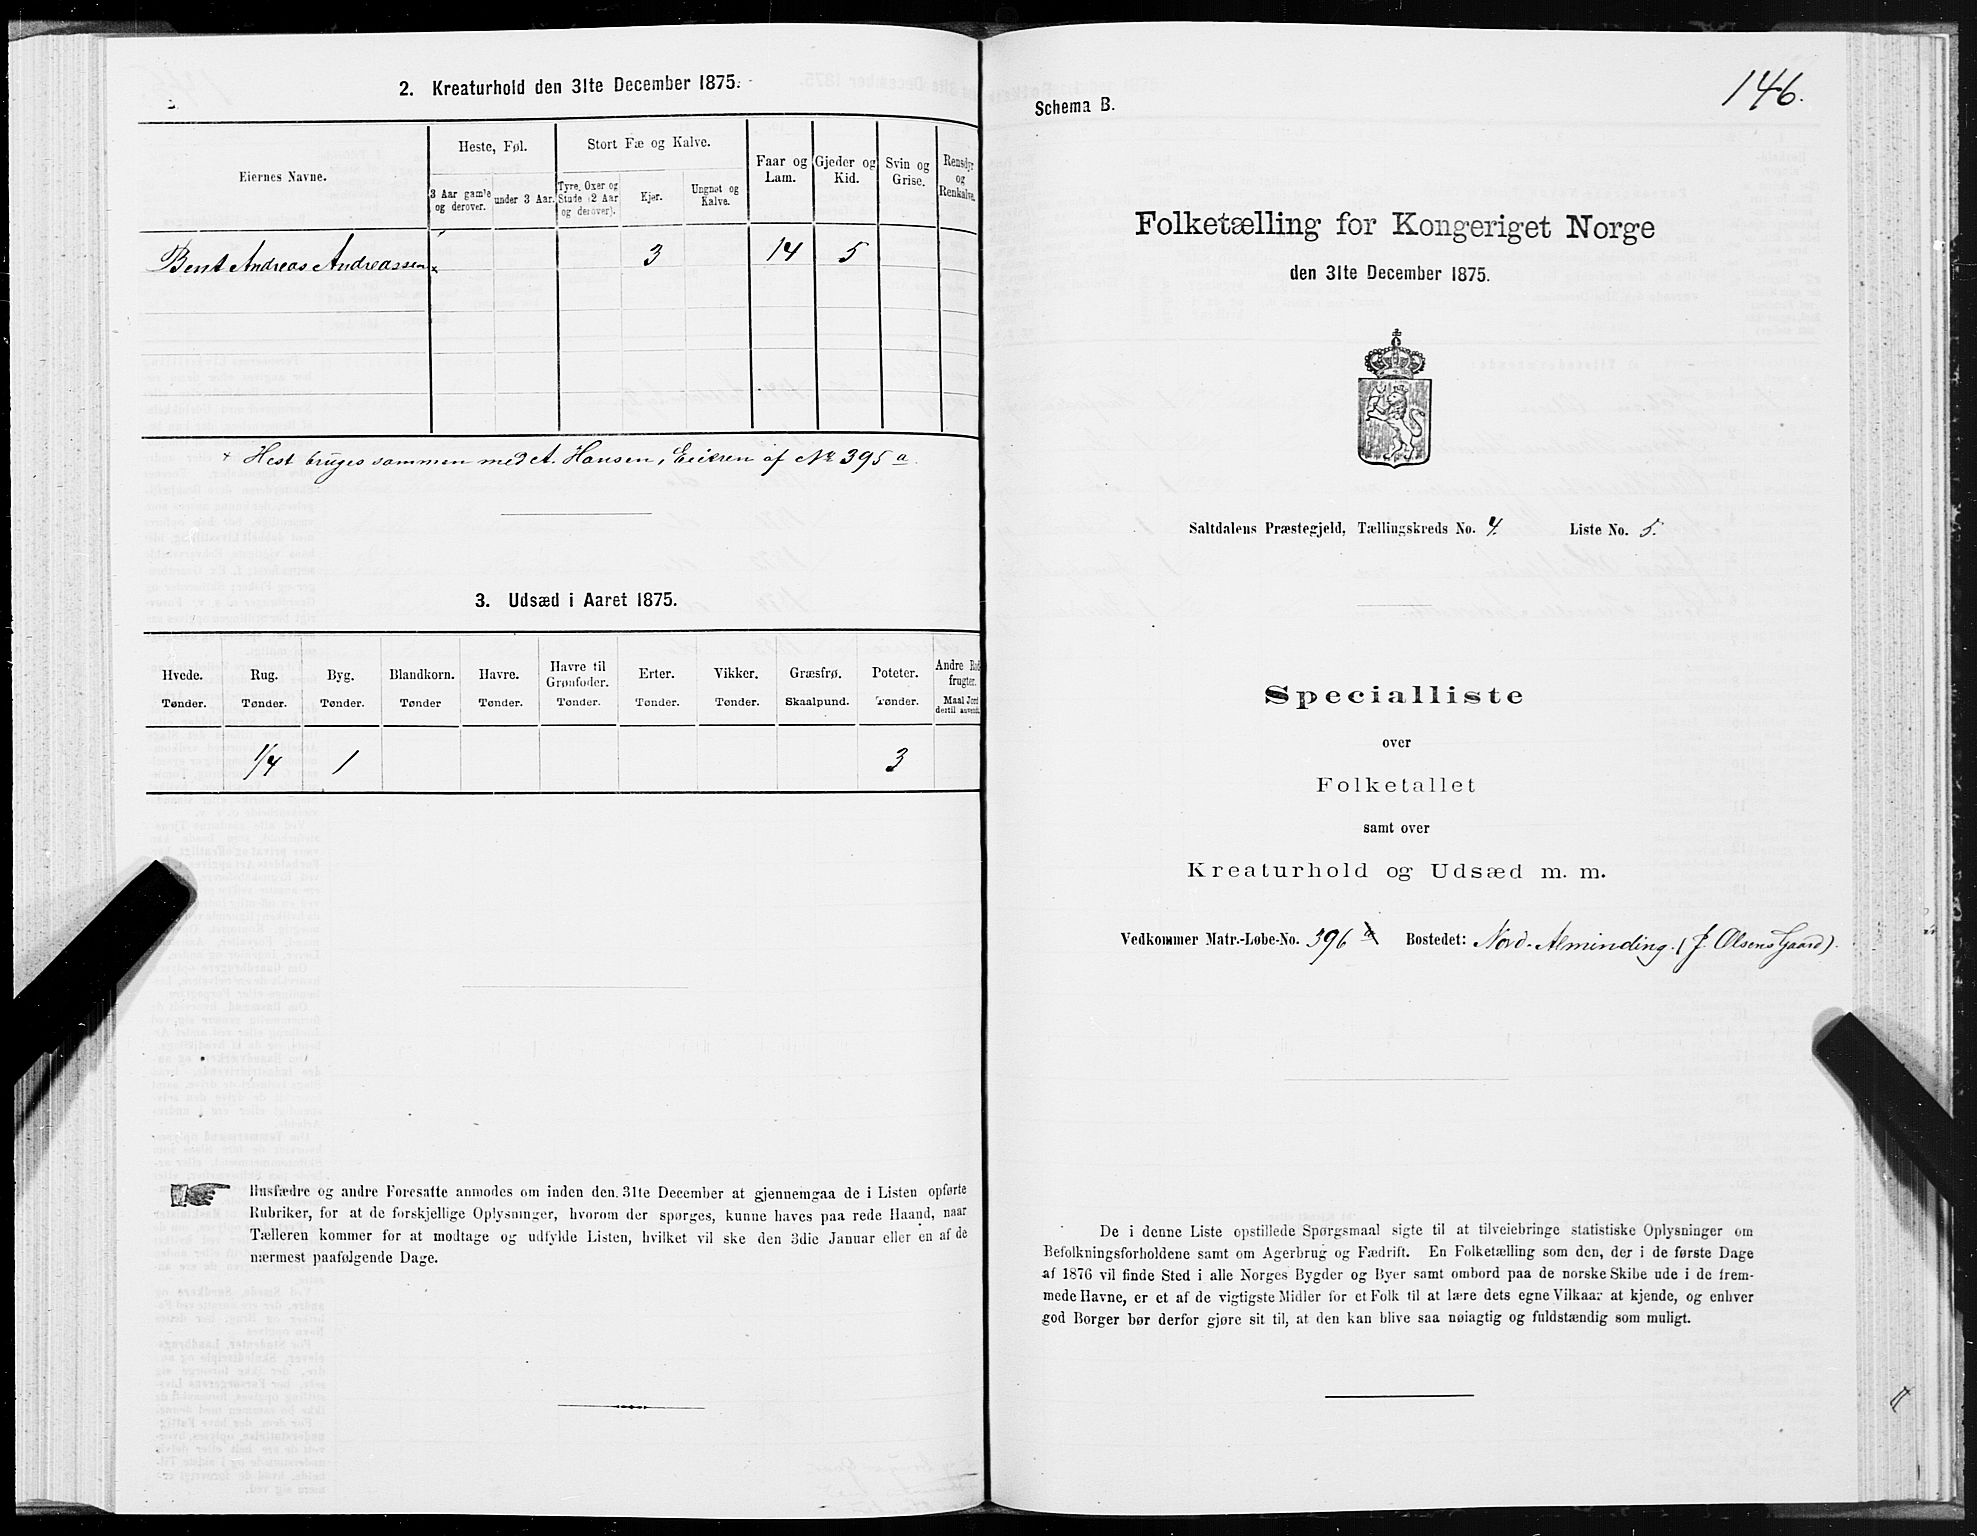 2. Kreaturhold den 31te December 1875.
Eiernes Navne.
Heste, Føl.
Stort Fæ og Kalve.
Faar og Lam.
Gjeder og Kid.
Svin og Grise.
Rensdyr og Renkalve.
3 Aar gamle og derover.
under 3 Aar.
Tyre, Oxer og Stude (2 Aar og derover).
Kjør.
Ungnøt og Kalve.
Bent Andreas Andreassen × 3 14 5
+ Hest bruges sammen med A. Hansen, Eieren af No 395 a.
3. Udsæd i Aaret 1875.
Hvede. Rug. Byg. Blandkorn. Havre. Havre til Grønfoder. Erter. Vikker. Græsfrø. Poteter. Andre Rodfrugter.
Tønder. Tønder. Tønder. Tønder Tønder. Tønder. Tønder. Tønder. Skaalpund. Tønder. Maal Jord dertil anvendt.
1/4 1 3
Husfædre og andre Foresatte anmodes om inden den 31te December at gjennemgaa de i Listen opførte
Rubriker, for at de forskjellige Oplysninger, hvorom der spørges, kunne haves paa rede Haand, naar
Tælleren kommer for at modtage og udfylde Listen, hvilket vil ske den 3die Januar eller en af de
nærmest paafølgende Dage.
146.
Schema B.
Folketælling for Kongeriget Norge
den 31te December 1875.
Saltdalens Præstegjeld, Tællingskreds No. 4. Liste No. 5.
Specialliste
over
Folketallet
samt over
Kreaturhold og Udsæd m. m.
Vedkommer Matr.-Løbe-No. 396 Bostedet: Nord-Alminding. (J. Olsens Gaard).
De i denne Liste opstillede Spørgsmaal sigte til at tilveiebringe statistiske Oplysninger om
Befolkningsforholdene samt om Agerbrug og Fædrift. En Folketælling som den, der i de første Dage
af 1876 vil finde Sted i alle Norges Bygder og Byer samt ombord paa de norske Skibe ude i de frem-
mede Havne, er et af de vigtigste Midler for et Folk til at lære dets egne Vilkaar at kjende, og enhver
god Borger bør derfor gjøre sit til, at den kan blive saa nøiagtig og fuldstændig som muligt.